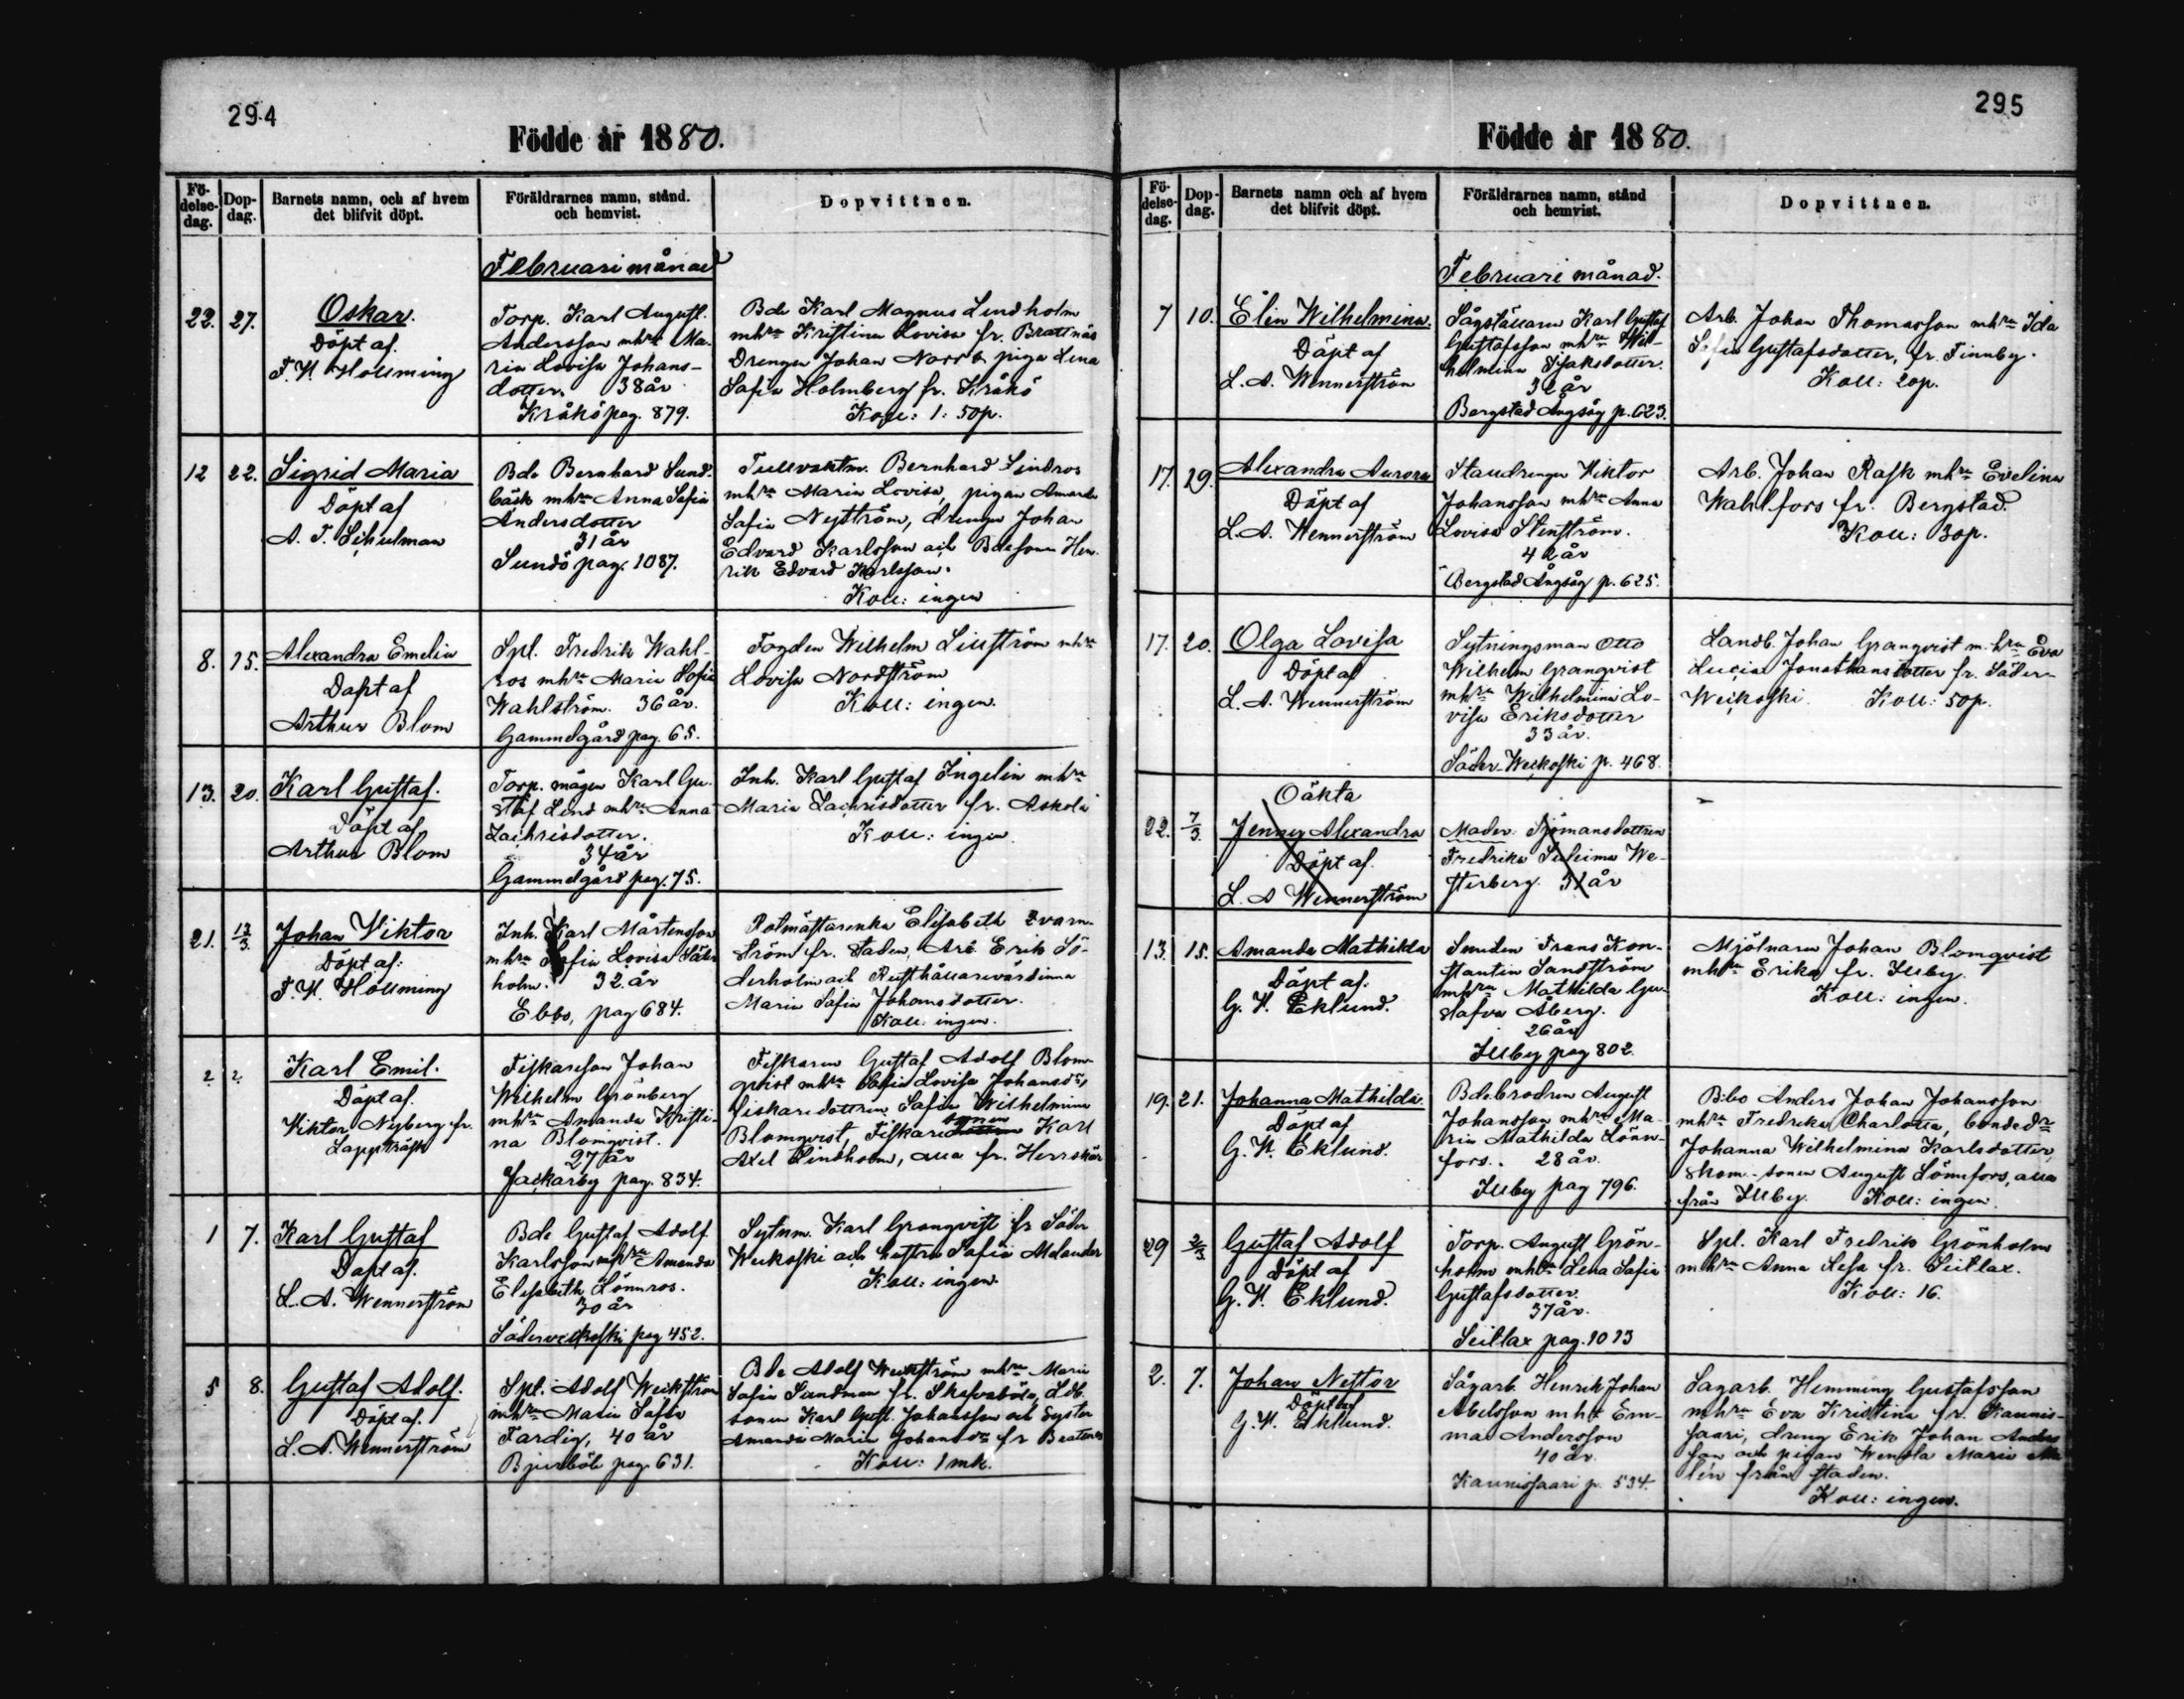 294
Födde år 1880.
Fö-
delse-
dag.
Dop-
dag.
Barnets namn, och af hvem
det blifvit döpt.
Föräldrarnes namn, stånd.
och hemvist.
Dopvittnen.
Februari månad
22. 27.
Oskar.
Döpt af.
F. W. Hollming
Torp. Karl August.
Andersson mhru Ma-
ria Lovisa Johans-
dotter. 38 år
Kråkö pag. 879.
Bde Karl Magnus Lindholm
mhru Kristina Lovisa fr. Brattnäs
Drengen Johan Norrb. piga Lena
Sofia Holmberg fr. Kråkö
Koll: 1: 50p.
12 22.
Sigrid Maria
Döpt af
A. F. Schulman
Bde Bernhard Sund-
bäck mhru Anna Sofia
Andersdotter
31 år
Sundö pag. 1087.
Tullvaktm. Bernhard Lindros
mhru Maria Lovisa, pigan Amanda
Sofia Nyström, drengen Johan
Edvard Karlsson och Bdesonen Hen-
rik Edvard Karlsson.
Koll: ingen
8. 15.
Alexandra Emelia
Döpt af
Arthur Blom
Spl. Fredrik Wahl-
ros mhru Maria Sofia
Wahlström. 36 år.
Gammelgård pag. 65.
Fogden Wilhelm Liljström mhru
Lovisa Nordström
Koll: ingen.
13. 20.
Karl Gustaf.
Döpt af
Arthur Blom
Torp. mågen Karl Gu-
staf Lind mhru Anna
Zachrisdotter.
34 år
Gammelgård pag. 75.
Inh. Karl Gustaf Ingelin mhru
Maria Zachrisdotter fr. Askola
Koll: ingen
21. 12/3.
Johan Viktor
Döpt af:
F. W. Hollming
Inh. Karl Mårtensson
mhru Sofia Lovisa Söder
holm. 32 år
Ebbo, pag 684.
Rotmästarenka Elisabeth Qvarn-
ström fr. staden, Arb. Erik Sö-
derholm och Rusthållarevärdinna
Maria Sofia Johansdotter.
Koll: ingen.
2 2.
Karl Emil.
Döpt af.
Viktor Nyberg fr.
Lappträsk
Fiskareson Johan
Wilhelm Grönberg
mhru Amanda Kristi-
na Blomqvist.
27 år
Jackarby pag. 834.
Fiskaren Gustaf Adolf Blom-
qvist mhru Sofia Lovisa Johansdr,
Fiskaredottren Sofia Wilhelmina
Blomqvist, Fiskaresonen Karl
Axel Lindholm, alla fr. Herrskär
1 7.
Karl Gustaf
Döpt af.
L. A. Wennerström
Bde Gustaf Adolf
Karlsson mhru Amanda
Elisabeth Lönnros.
30 år
Söderveckoski pag 452.
Sytnm. Karl Granqvist fr Söder
Weckoski och hustru Sofia Melander
Koll: ingen.
5 8.
Gustaf Adolf.
Döpt af.
L. A. Wennerström
Spl. Adolf Weckström
mhru Maria Sofia
Färdig, 40 år
Bjurböle pag. 631.
Bde Adolf Weckström mhru Maria
Sofia Sandman fr. Skavaböle, Ldb.
sonen Karl Gust. Johansson och Syster
Amanda Maria Johansdr fr Brattnäs
Koll: 1 mk.
295
Födde år 1880.
Fö-
delse-
dag.
Dop-
dag.
Barnets namn och af hvem
det blifvit döpt.
Föräldrarnes namn, stånd
och hemvist.
Dopvittnen.
Februari månad.
7 10.
Elin Wilhelmina.
Döpt af
L. A. Wennerström
Sågställaren Karl Gustaf
Gustafsson mhru Wil-
helmina Isaksdotter.
32 år
Bergstad Ångsåg p. 623.
Arb. Johan Thomasson mhru Ida
Sofia Gustafsdotter, fr. Finnby.
Koll: 20p.
17. 29.
Alexandra Aurora
Döpt af
L. A. Wennerström
Staudrengen Viktor
Johansson mhru Anna
Lovisa Stenström.
42 år
Bergstad Ångsåg p. 625.
Arb. Johan Rask mhru Evelina
Wahlfors fr. Bergstad.
Koll: 30p.
17. 20.
Olga Lovisa
Döpt af
L. A. Wennerström
Sytningsman Otto
Wilhelm Granqvist
mhru Wilhelmina Lo-
visa Eriksdotter
33 år.
Söder-Weckoski p. 468.
Landb. Johan Granqvist m. hru Eva
Lucia Jonathansdotter fr. Söder-
Weckoski. Koll: 50p.
Oäkta
22. 7/3.
Jenny Alexandra
Döpt af.
L. A Wennerström
Moder: Sjömansdottren
Fredrika Suleima We-
sterberg. 31 år
13. 15.
Amanda Mathilda
Döpt af.
G. W. Eklund.
Smeden Frans Kon-
stantin Sandström
mhru Mathilda Gu-
stafva Åberg.
26 år
Illby pag 802.
Mjölnaren Johan Blomqvist
mhru Erika fr. Illby.
Koll: ingen.
19. 21.
Johanna Mathilda.
Döpt af
G. W. Eklund.
Bdebrodren August
Johansson mhru Ma-
ria Mathilda Lönn-
fors. 28 år.
Illby pag 796.
Bbo Anders Johan Johansson
mhru Fredrika Charlotta, bondedr
Johanna Wilhelmina Karlsdotter,
skom.-sonen August Lönnfors, alla
från Illby. Koll: ingen
29 2/3
Gustaf Adolf
Döpt af
G. W. Eklund.
Torp. August Grön-
holm mhru Lena Sofia
Gustafsdotter.
37 år.
Seitlax pag. 1013
Spl. Karl Fredrik Grönholm
mhru Anna Lesa fr. Seitlax.
Koll: 16.
2. 7.
Johan Nestor
Döpt af
G. W. Eklund.
Sågarb. Henrik Johan
Abelsson mhr Em-
ma Andersson
40 år.
Kaunissaari p. 534.
Sagarb. Hemming Gustafsson
mhru Eva Kristina fr. Kaunis-
saari, dreng Erik Johan Anders
son och pigan Wendla Maria
lén från staden.
Koll: ingen.